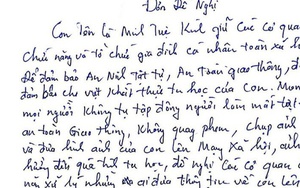 Đơn Đề Nghị
Con Tên là Minh Tuệ Kính gửi Các Cơ qua
Chức năng và tổ chức gia đình cá nhân toàn xã h
Để đảm bảo An Ninh trật tự, An toàn giao thông, đ
đảm bảo cho việc học tu học của Con. Mon
mọi người Không tụ tập đông người làm mất trật
an toàn Giao thông, Không quay phim, chụp ảnh
và đưa hình ảnh của con lên Mạng Xã hội, ảnh
hưởng đến quá trình tu học, đề nghị Các Cơ quan
xử lý những ai đưa thông tin về con lên